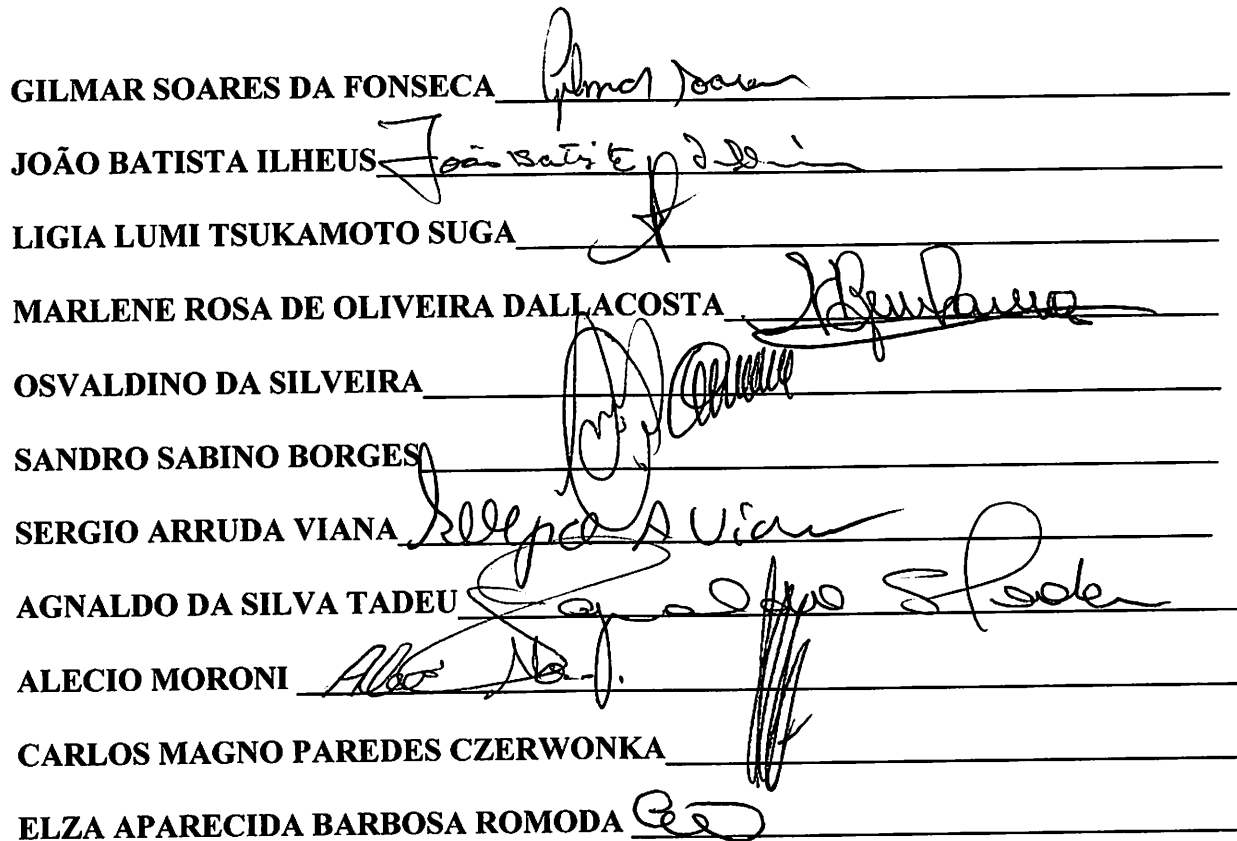 GILMAR SOARES DA FONSECA Gilmar Soares
JOÃO BATISTA ILHEUS João Batista
LIGIA LUMI TSUKAMOTO SUGA
MARLENE ROSA DE OLIVEIRA DALLACOSTA
OSVALDINO DA SILVEIRA
SANDRO SABINO BORGES
SERGIO ARRUDA VIANA Sergio A Viana
AGNALDO DA SILVA TADEU Agnaldo S Tadeu
ALECIO MORONI
CARLOS MAGNO PAREDES CZERWONKA
ELZA APARECIDA BARBOSA ROMODA